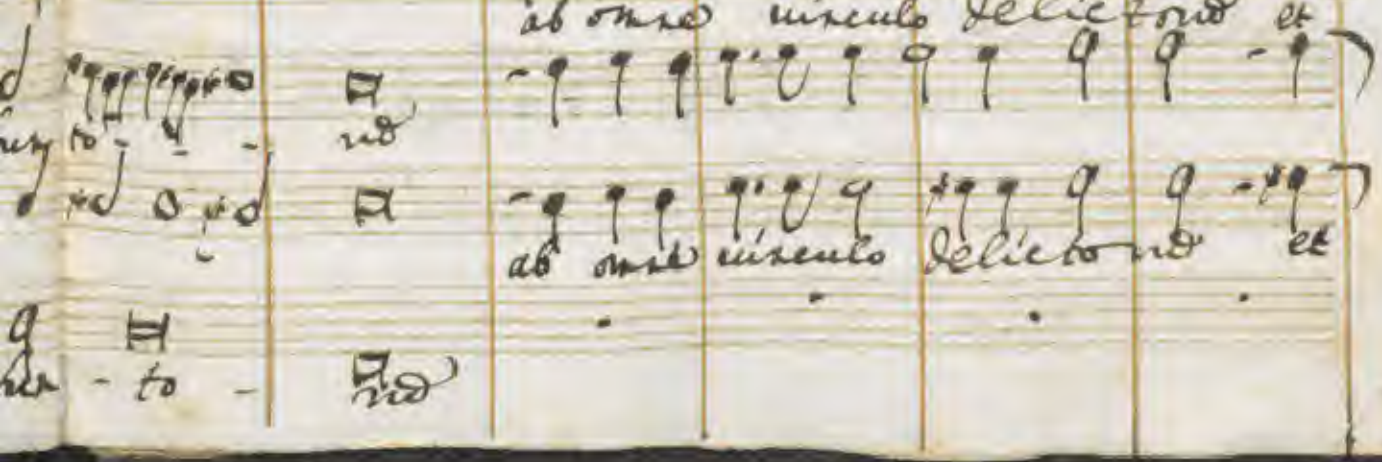 ab omne uinculo delictorū et
to - - - rū
ab omne uinculo delictorū et
- to - rū